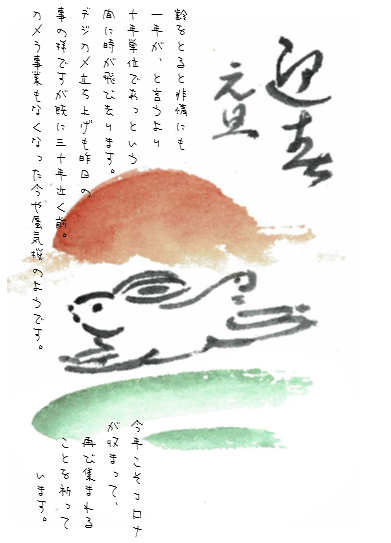 迎春
元旦
齢をとると非情にも
一年が、と言うより
十年単位であっという
間に時が飛び去ります。
デジカメ立ち上げも昨日の
事の様ですが既に三十年近く前。
カメラ事業もなくなった今や蜃気楼のようです。
今年こそコロナ
が収まって、
再び集まれる
ことを祈って
います。